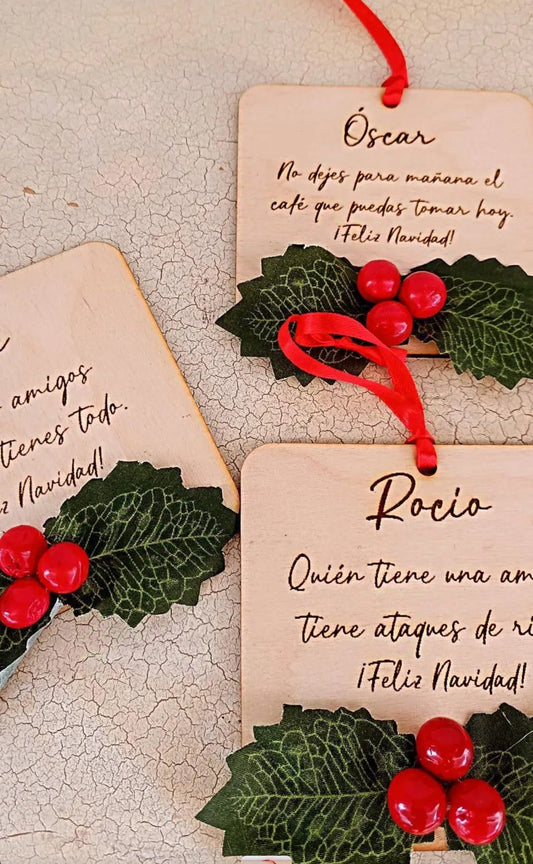 Óscar
No dejes para mañana el
café que puedas tomar hoy.
¡Feliz Navidad!
amigos
tienes todo.
Navidad!
Rocio
Quién tiene una
tiene ataques de
¡Feliz Navidad!